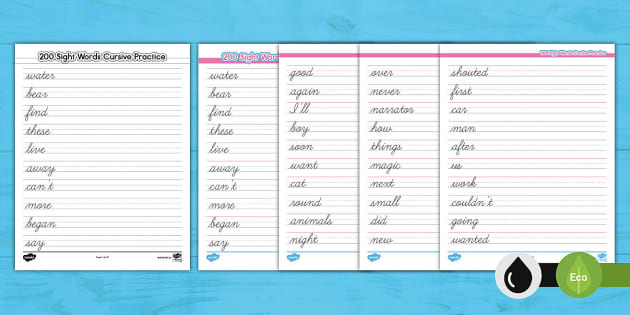 200 Sight Words Cursive Practice
water
bear
find
these
live
away
can't
more
began
say
200 Sight Words
water
bear
find
these
live
away
can't
more
began
say
good
again
I'll
boy
soon
want
cat
round
animals
night
over
never
narrator
how
things
magic
next
small
did
new
shouted
first
car
man
after
us
work
couldn't
going
wanted
Eco